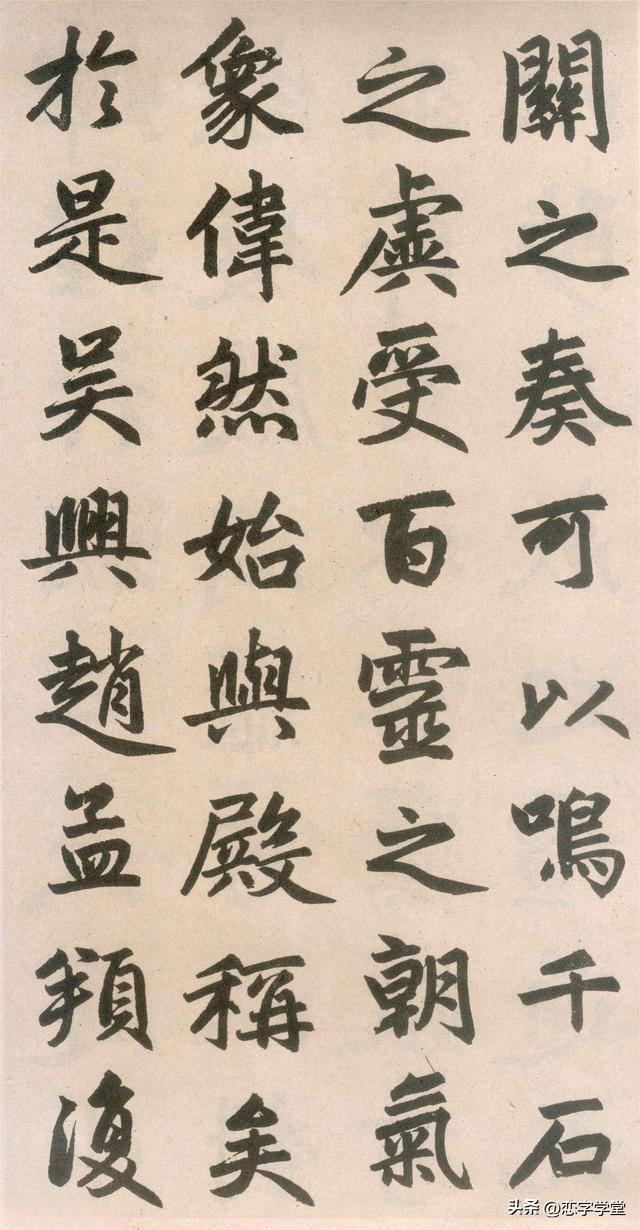 關之奏可以鳴千石
之虡受百靈之朝氣
象偉然始與殿稱矣
於是吳興趙孟頫復
头条 @恋字学堂